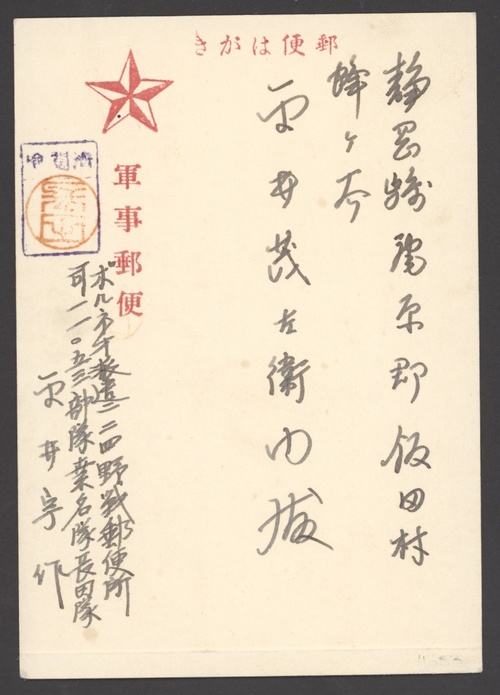 郵便はがき
軍事郵便
濟閲検
静岡縣榛原郡飯田村
蜂ヶ谷
平井茂左衛門様
ボルネオ派遣二四野戦郵便所
可一一〇五三部隊桑名隊長田隊
平井宇作